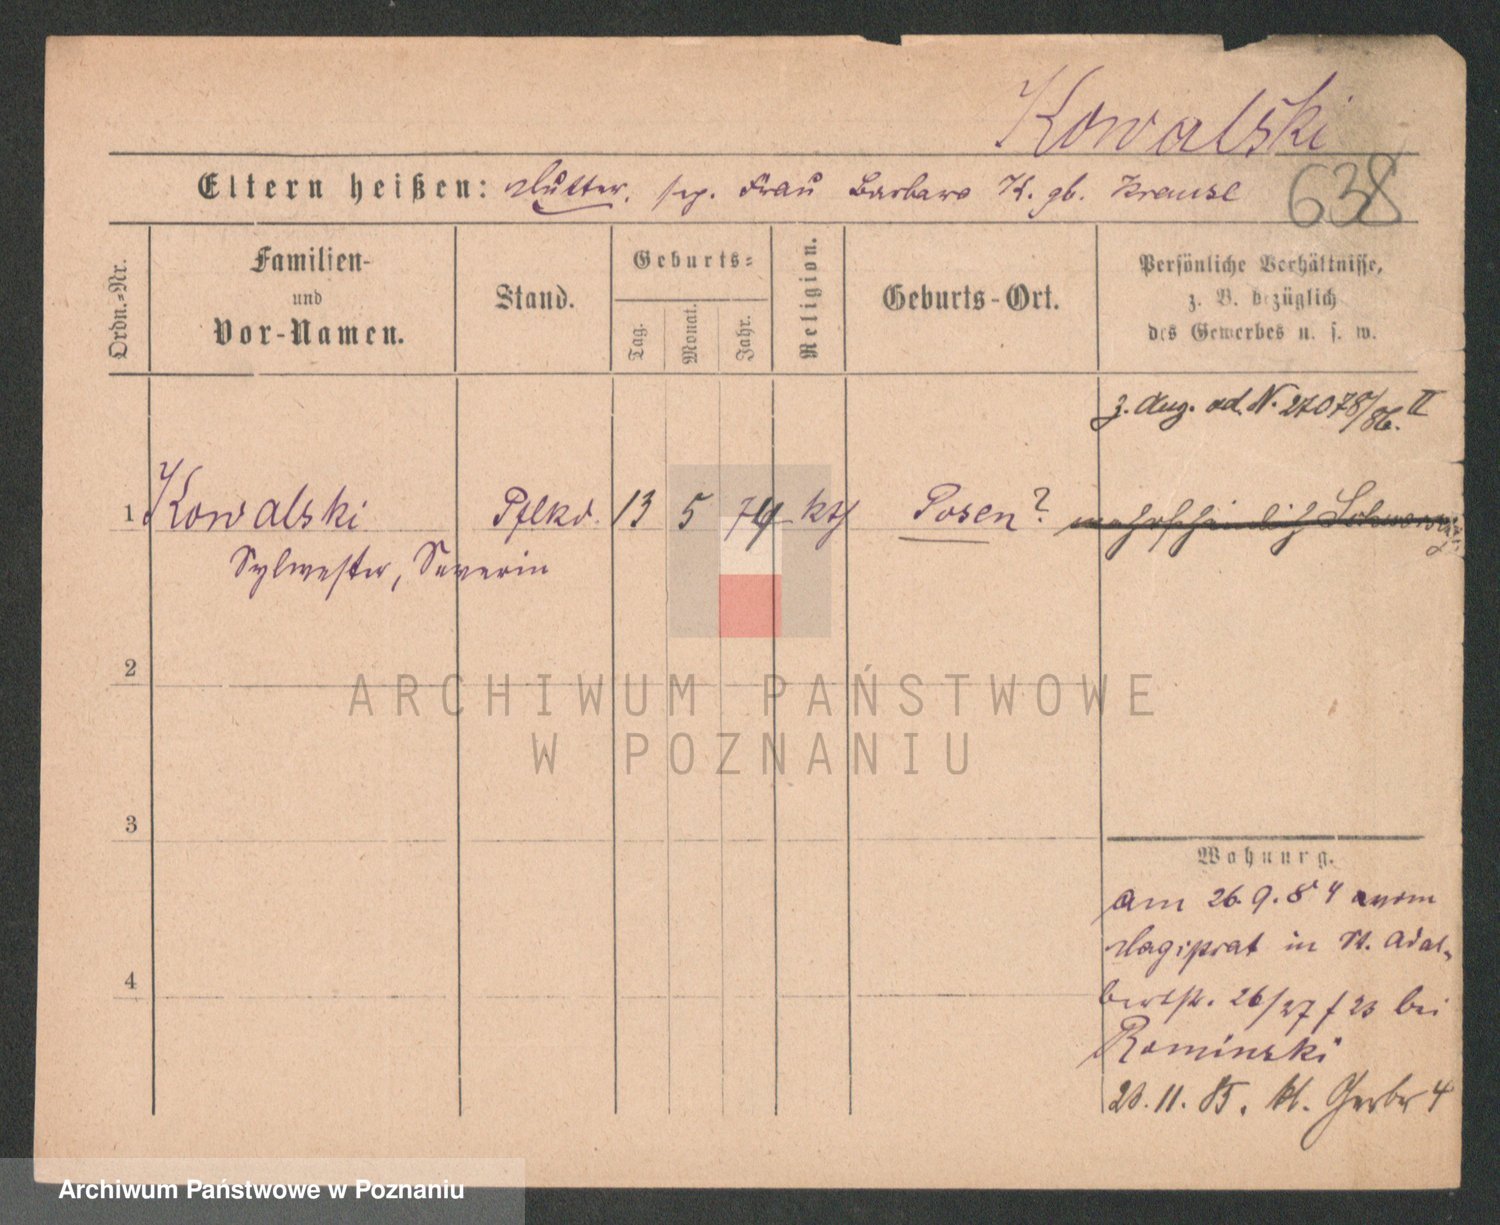 Kowalski
Eltern heißen: Mutter, sep. Frau Barbara K. gb. Krause
638
Ordn.-Nr.
Familien-
und
Vor-Namen.
Stand.
Geburts-
Tag.
Monat.
Jahr.
Religion.
Geburts-Ort.
Persönliche Verhältnisse,
z. B. bezüglich
des Gewerbes u. s. w.
z. Aug. ad. N. 27078/86. II
1 Kowalski Pflkd. 13 5 74 kth Posen? wahrscheinlich
Sylwester, Severin
2
3
4
Wohnung.
am 26.9.84 vom
Magistrat in Pfl. Adal-
bertstr. 26/27 f 23 bei
Rominski
23.11.85. kl. Gerber 4
ARCHIWUM PAŃSTWOWE
W POZNANIU
Archiwum Państwowe w Poznaniu